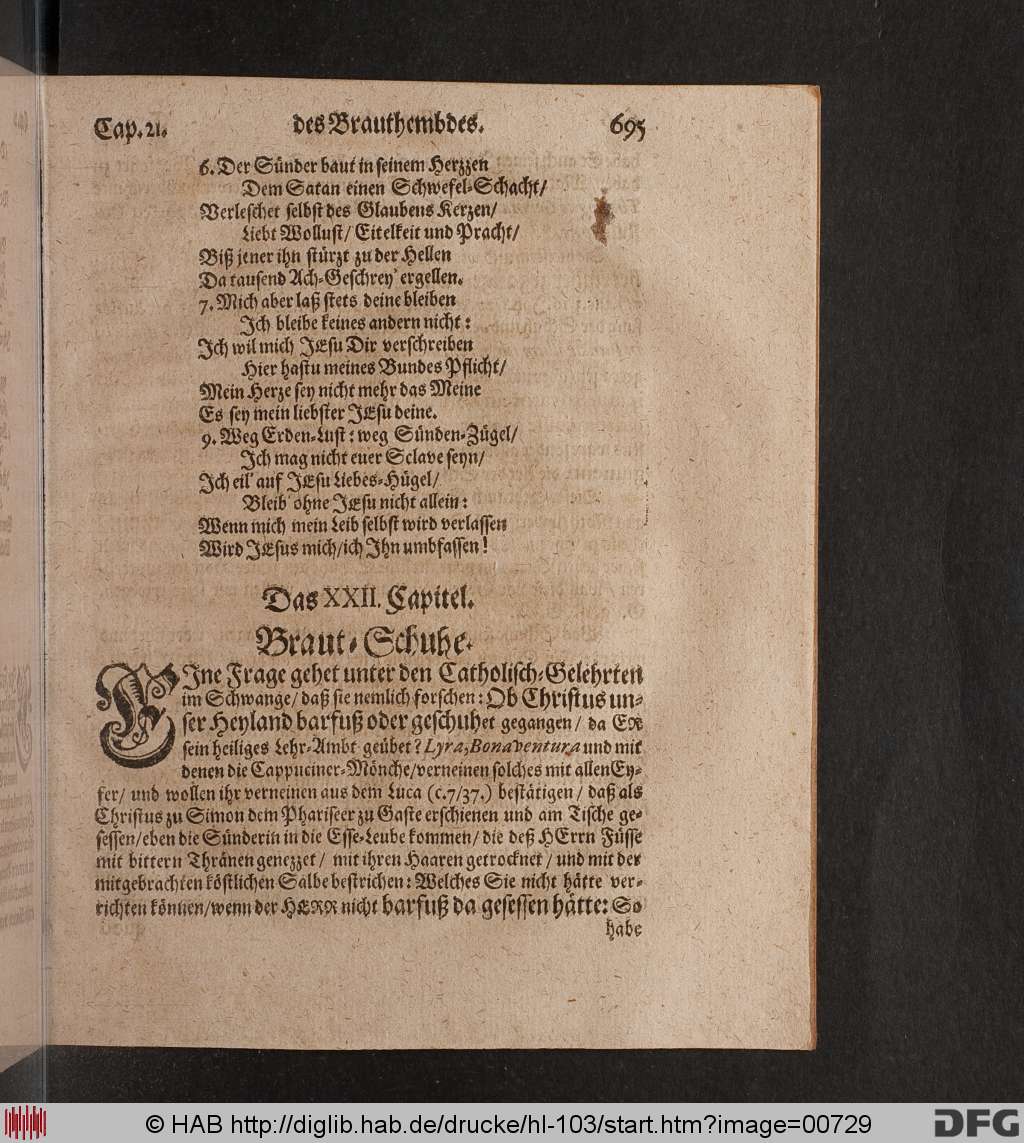 Cap. 21. des Brauthembdes. 695
6. Der Sünder baut in seinem Herzzen
Dem Satan einen Schwefel-Schacht/
Verleschet selbst des Glaubens Kerzen/
Liebt Wollust/ Eitelkeit und Pracht/
Biß jener ihn stürzt zu der Hellen
Da tausend Ach-Geschrey' ergellen.
7. Mich aber laß stets deine bleiben
Ich bleibe keines andern nicht:
Ich wil mich JEsu Dir verschreiben
Hier hastu meines Bundes Pflicht/
Mein Herze sey nicht mehr das Meine
Es sey mein liebster JEsu deine.
9. Weg Erden-Lust: weg Sünden-Zügel/
Ich mag nicht euer Sclave seyn/
Ich eil' auf JEsu Liebes-Hügel/
Bleib' ohne JEsu nicht allein:
Wenn mich mein Leib selbst wird verlassen
Wird JEsus mich/ich Ihn umbfassen!
Das XXII. Capitel.
Braut-Schuhe.
EIne Frage gehet unter den Catholisch-Gelehrten
im Schwange/ daß sie nemlich forschen: Ob Christus un-
ser Heyland barfuß oder geschuhet gegangen/ da ER
sein heiliges Lehr-Ambt geübet? Lyra, Bonaventura und mit
denen die Cappuciner-Mönche/verneinen solches mit allen Ey-
fer/ und wollen ihr verneinen aus dem Luca (c.7/37.) bestätigen/ daß als
Christus zu Simon dem Phariseer zu Gaste erschienen und am Tische ge-
sessen/eben die Sünderin in die Esse-Leube kommen/ die deß HErrn Füsse
mit bittern Thränen genezzet/ mit ihren Haaren getrocknet/ und mit der
mitgebrachten köstlichen Salbe bestrichen: Welches Sie nicht hätte ver-
richten können/wenn der HERR nicht barfuß da gesessen hätte: So
habe
© HAB http://diglib.hab.de/drucke/hl-103/start.htm?image=00729 DFG